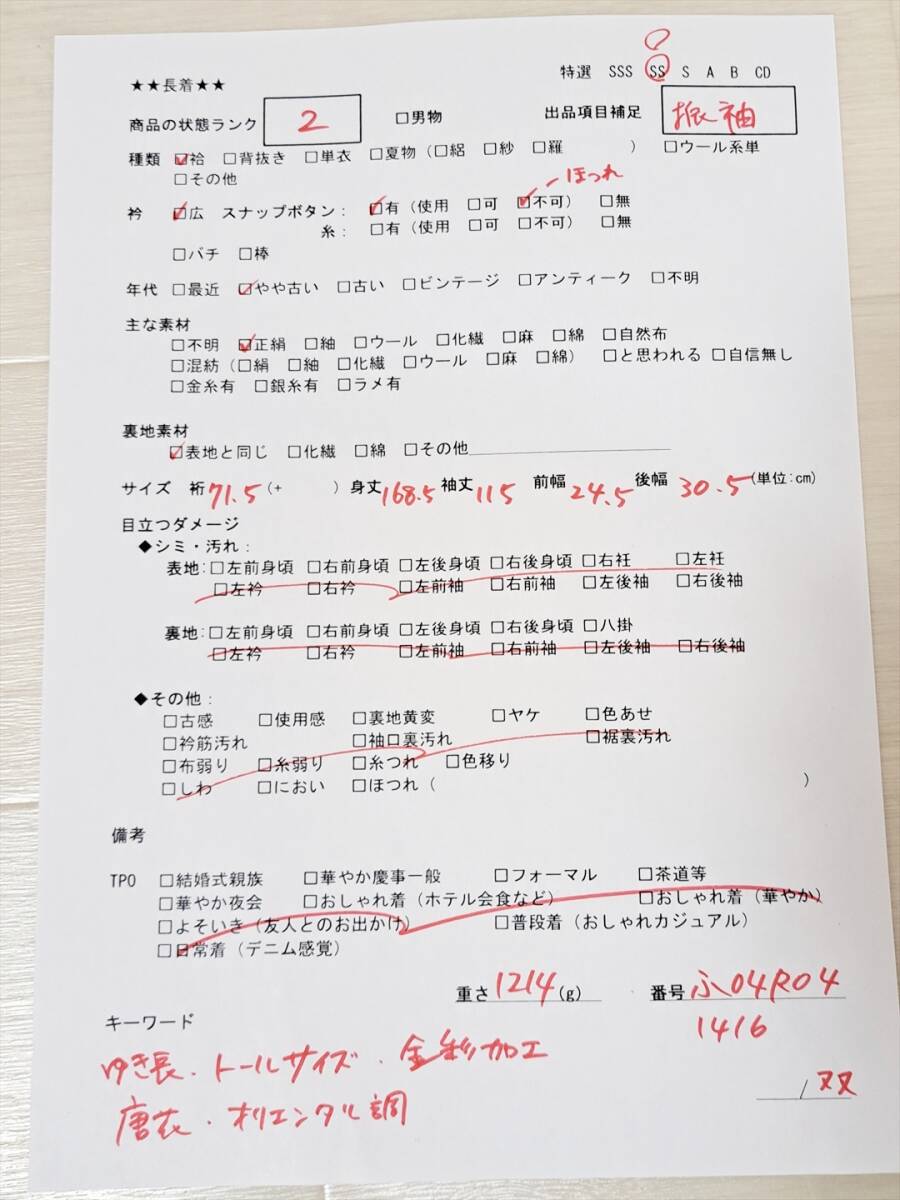 特選 SSS SS S A B CD
★★長着★★
商品の状態ランク 2 □男物 出品項目補足 振袖
種類 ☑袷 □背抜き □単衣 □夏物(□絽 □紗 □羅 ) □ウール系単
□その他
ほつれ
衿 ☑広 スナップボタン: ☑有(使用 □可 ☑不可) □無
糸: □有(使用 □可 □不可) □無
□バチ □棒
年代 □最近 ☑やや古い □古い □ビンテージ □アンティーク □不明
主な素材
□不明 ☑正絹 □紬 □ウール □化繊 □麻 □綿 □自然布
□混紡(□絹 □紬 □化繊 □ウール □麻 □綿) □と思われる □自信無し
□金糸有 □銀糸有 □ラメ有
裏地素材
☑表地と同じ □化繊 □綿 □その他
サイズ 裄71.5(+ ) 身丈168.5 袖丈115 前幅24.5 後幅30.5(単位:cm)
目立つダメージ
◆シミ・汚れ:
表地:□左前身頃 □右前身頃 □左後身頃 □右後身頃 □右衽 □左衽
□左衿 □右衿 □左前袖 □右前袖 □左後袖 □右後袖
裏地:□左前身頃 □右前身頃 □左後身頃 □右後身頃 □八掛
□左衿 □右衿 □左前袖 □右前袖 □左後袖 □右後袖
◆その他:
□古感 □使用感 □裏地黄変 □ヤケ □色あせ
□衿筋汚れ □袖口裏汚れ □裾裏汚れ
□布弱り □糸弱り □糸つれ □色移り
□しわ □におい □ほつれ( )
備考
TPO □結婚式親族 □華やか慶事一般 □フォーマル □茶道等
□華やか夜会 □おしゃれ着(ホテル会食など) □おしゃれ着(華やか)
□よそいき(友人とのお出かけ) □普段着(おしゃれカジュアル)
□日常着(デニム感覚)
重さ1214(g) 番号 ふ04R04
1416
キーワード
ゆき長・トールサイズ・金彩加工
唐衣・オリエンタル調
/